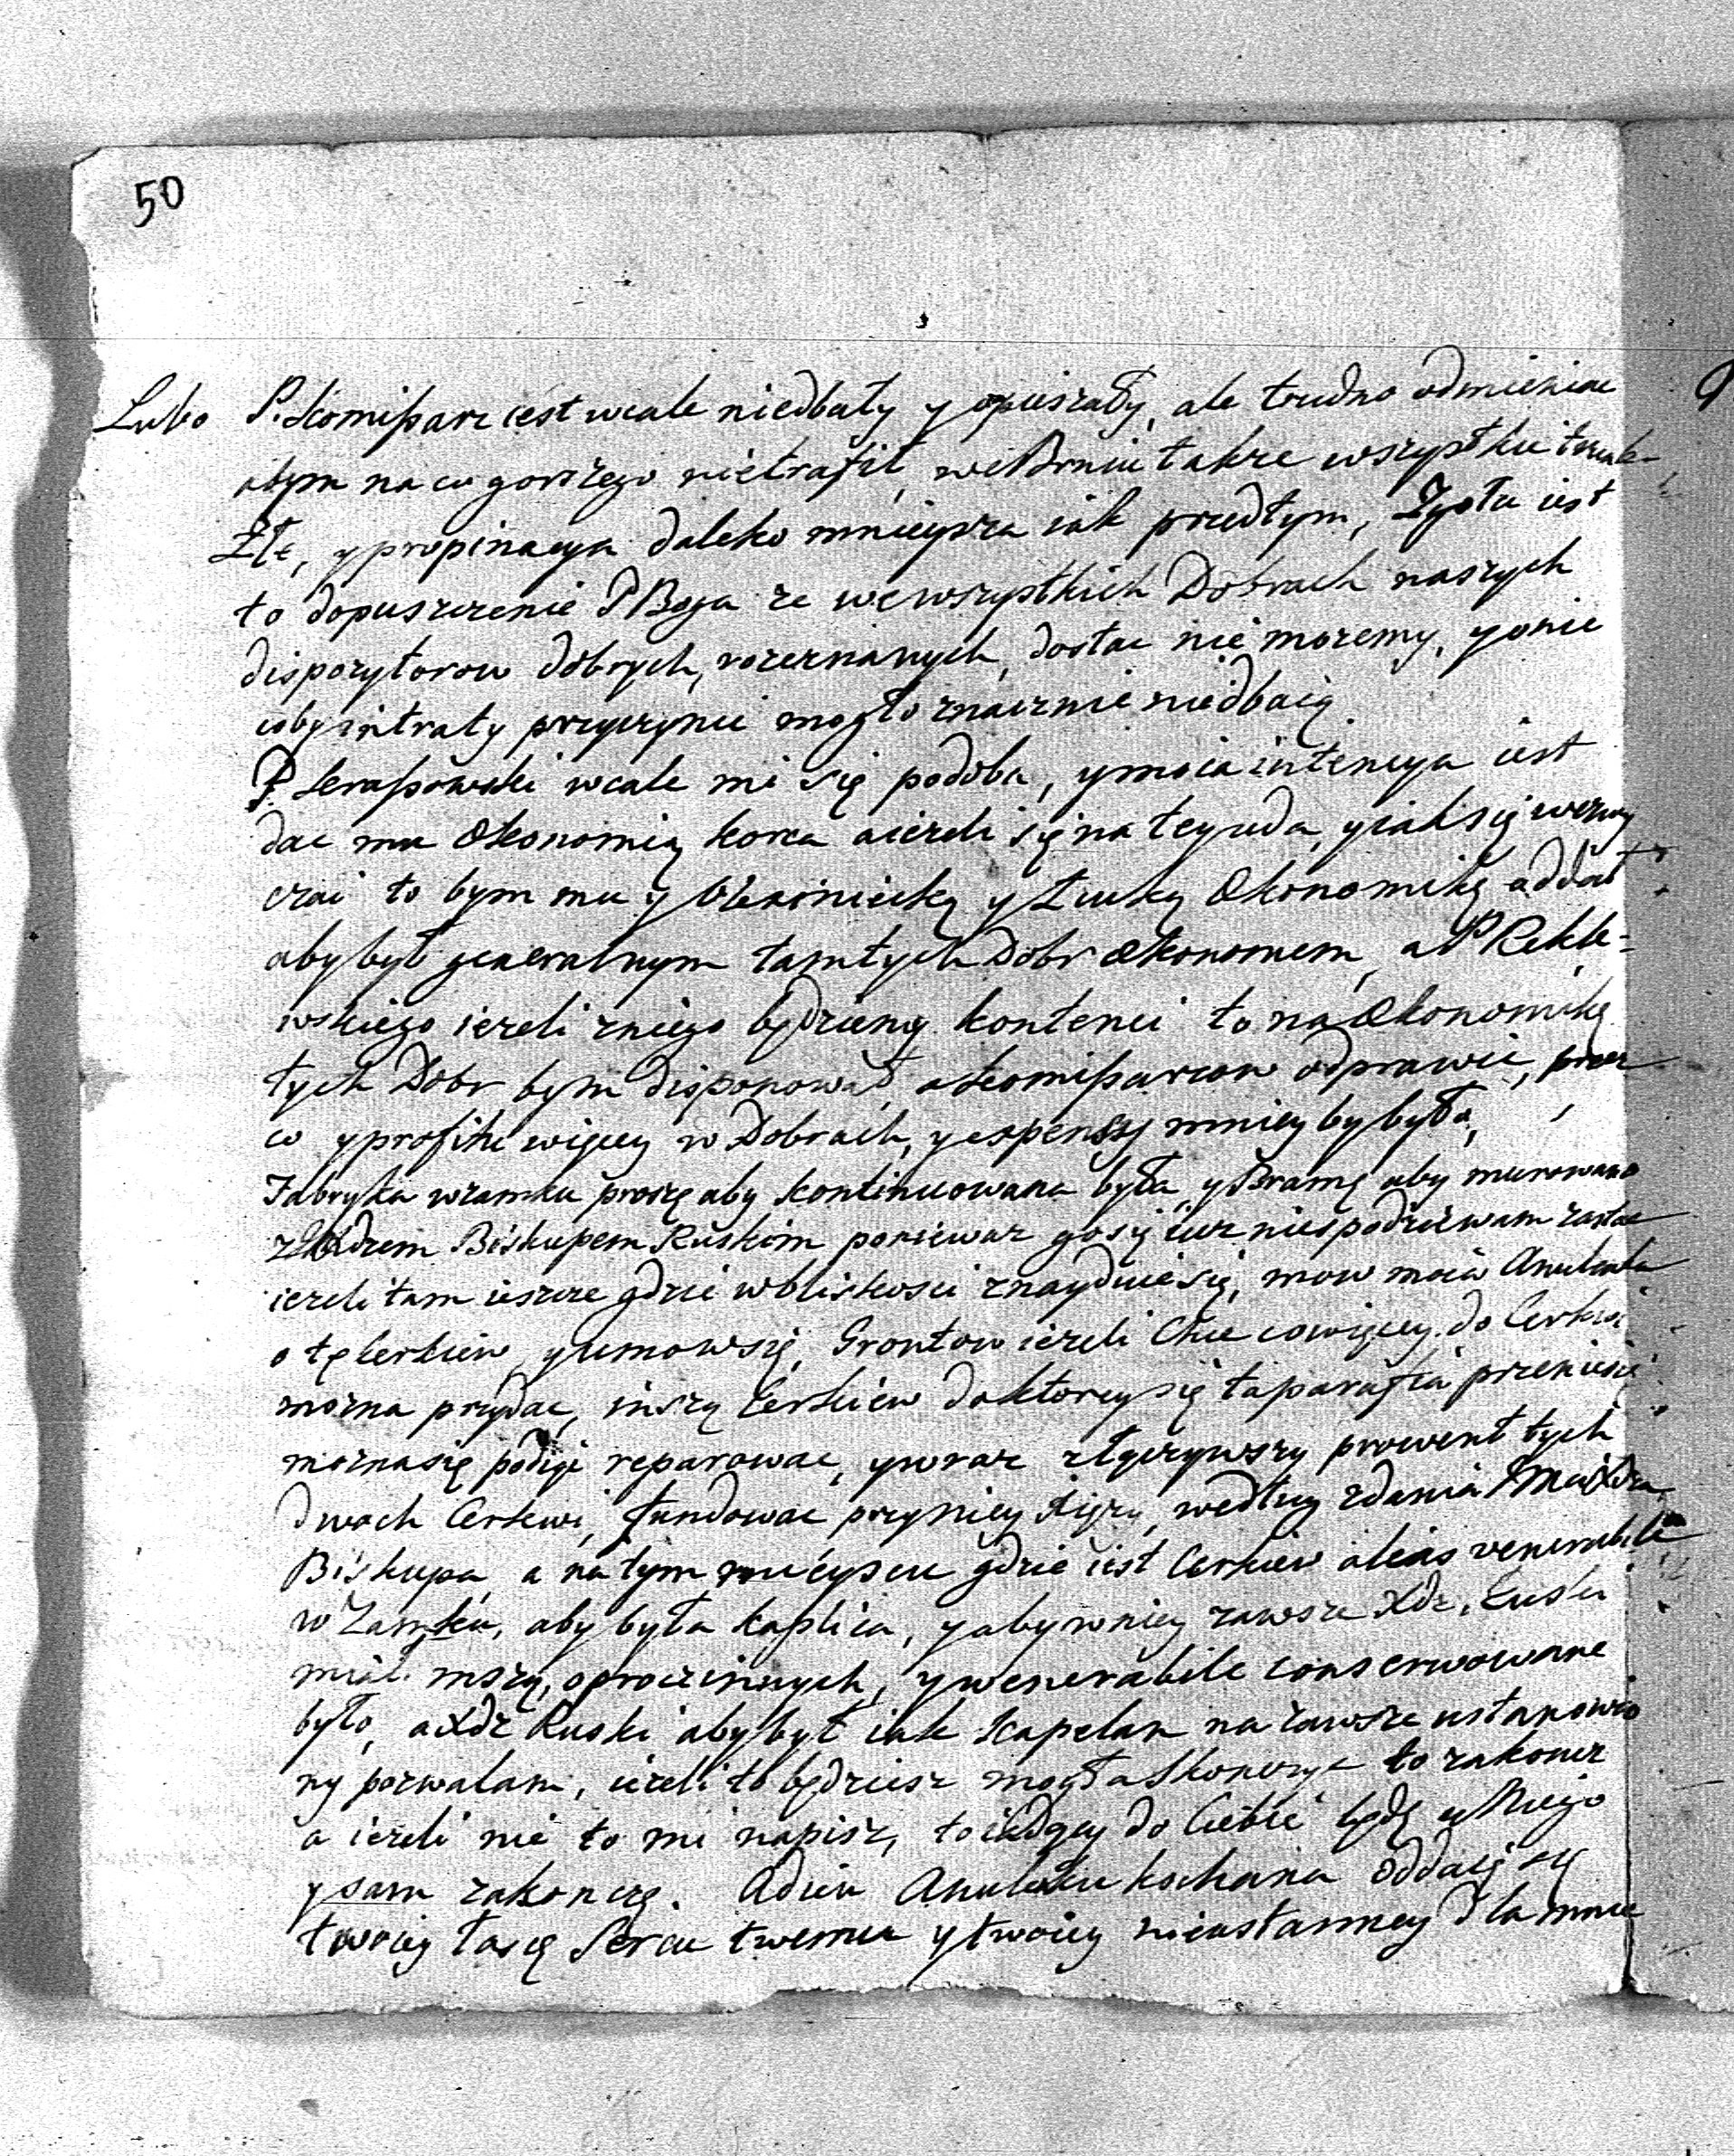 50
Lubo P. Komissarz iest wcale niedbały y opieszały, ale trudno odmieniac
abym na co gorszego nietrafił, we Brniu także wszystkie
Złe, y propinacya daleko mnieysza iak przedtym, Zgoła iest
to dopuszczenie P Boga ze wewszystkich Dobrach naszych
dispozytorow dobrych, rozeznanych, dostac nie mozemy, y onie
coby intraty przyczynic mogło znacznie niedbaią.
P. wcale mi się podoba, y moia intencya iest
dac mu Økonomią Korca aiezeli się na tey uda, y iak się wezwy
czai to bym mu y y Økonomikę oddał
aby był generalnym tamtych Dobr Økonomem, a P Rekle-
wskiego iezeli zniego będziemy kontenci to na Økonomikę
tych Dobr bym disponował, a Komissarzow odprawic, przez
co y profitu więcey w Dobrach, y expensy mniey by było,
Fabryka wzamku proszę aby kontinuowana była, y Bramę aby murowano
z Xdzem Biskupem Ruskim poniewaz go się iuz niespodziewam zastac
iezeli tam ieszcze gdzie wbliskosci znayduie się, mow moia Anulenku
o tę Cerkiew, y umow się, Grontow iezeli Chce cowięcey do Cerkwi
mozna przydac, inszą Cerkiew doktorey się ta parafia przeniesie
moznasię podiąć reparowac, y wraz złączywszy prowent tych
dwoch Cerkwi, fundowac przyniey Xięzy, według zdania Xdza
Biskupa, a na tym mieyscu gdzie iest Cerkiew alias venerabile
w Zamku, aby była kaplica, y aby w niey zawsze Xdz. Ruski
miał mszą, oprocz innych, y wenerabile conserwowane
było, a Xdz Ruski aby był iak Kapelan na zawsze ustanowio
ny pozwalam, iezeli to będziesz mogła skonczyc to zakoncz
a iezeli nie to mi napisz, to iadący do Ciebie będę u Niego
y sam zakonczę. Adieu Anulenku kochana oddaię się
twoiey łasce Sercu twemu y twoiey nieustanney dla mnie